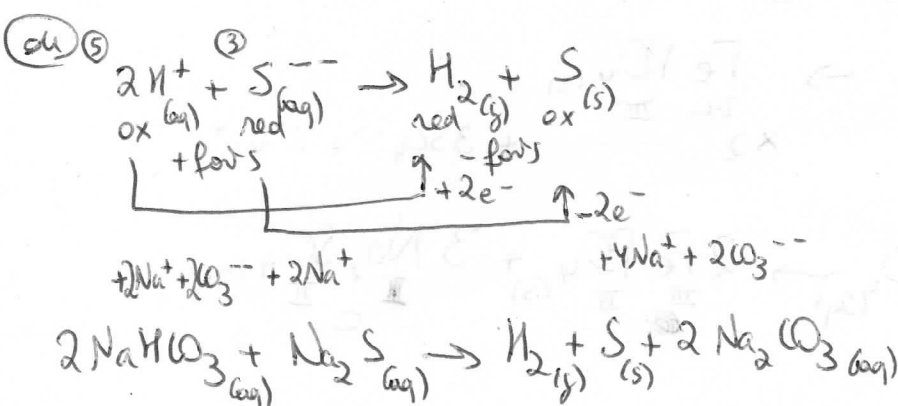 ⑤ ③
2H⁺(aq) + S⁻⁻(aq) → H₂(g) + S(s)
ox red red ox
+ forts - forts
+2e⁻ -2e⁻
+2Na⁺+2CO₃⁻⁻ + 2Na⁺ +4Na⁺ + 2CO₃⁻⁻
2NaHCO₃(aq) + Na₂S(aq) → H₂(g) + S(s) + 2 Na₂CO₃(aq)